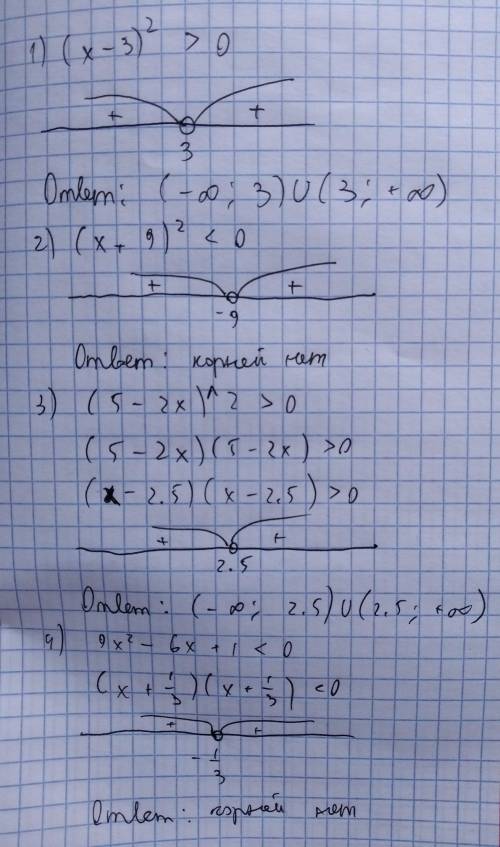 1) (x - 3)² > 0
+ +
3
Ответ: (-∞; 3) ∪ (3; +∞)
2) (x + 9)² < 0
+ +
-9
Ответ: корней нет
3) (5 - 2x)^2 > 0
(5 - 2x)(5 - 2x) > 0
(x - 2.5)(x - 2.5) > 0
+ +
2.5
Ответ: (-∞; 2.5) ∪ (2.5; +∞)
4) 9x² - 6x + 1 < 0
(x + 1/3)(x + 1/3) < 0
+ +
-1/3
Ответ: корней нет